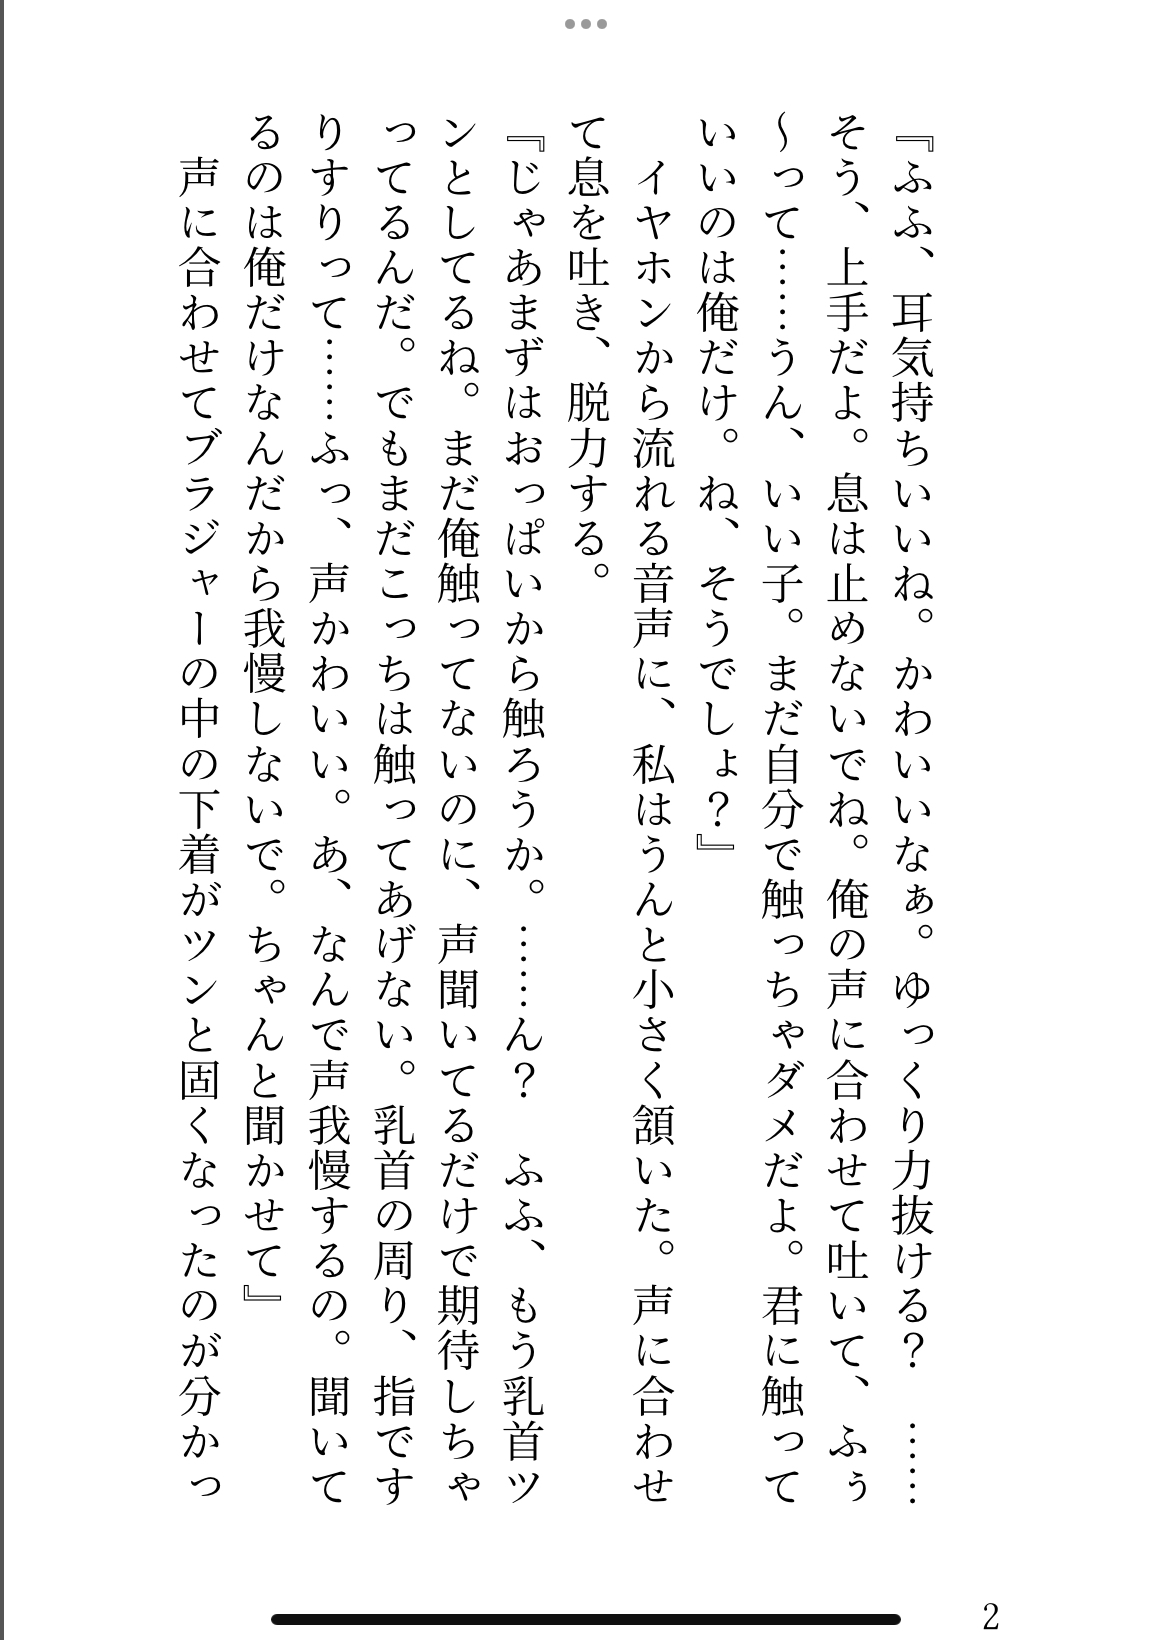 『ふふ、耳気持ちいいね。かわいいなぁ。ゆっくり力抜ける？　……
そう、上手だよ。息は止めないでね。俺の声に合わせて吐いて、ふぅ
～って……うん、いい子。まだ自分で触っちゃダメだよ。君に触って
いいのは俺だけ。ね、そうでしょ？』
　イヤホンから流れる音声に、私はうんと小さく頷いた。声に合わせ
て息を吐き、脱力する。
『じゃあまずはおっぱいから触ろうか。……ん？　ふふ、もう乳首ツ
ンとしてるね。まだ俺触ってないのに、声聞いてるだけで期待しちゃ
ってるんだ。でもまだこっちは触ってあげない。乳首の周り、指です
りすりって……ふっ、声かわいい。あ、なんで声我慢するの。聞いて
るのは俺だけなんだから我慢しないで。ちゃんと聞かせて』
　声に合わせてブラジャーの中の下着がツンと固くなったのが分かっ
2